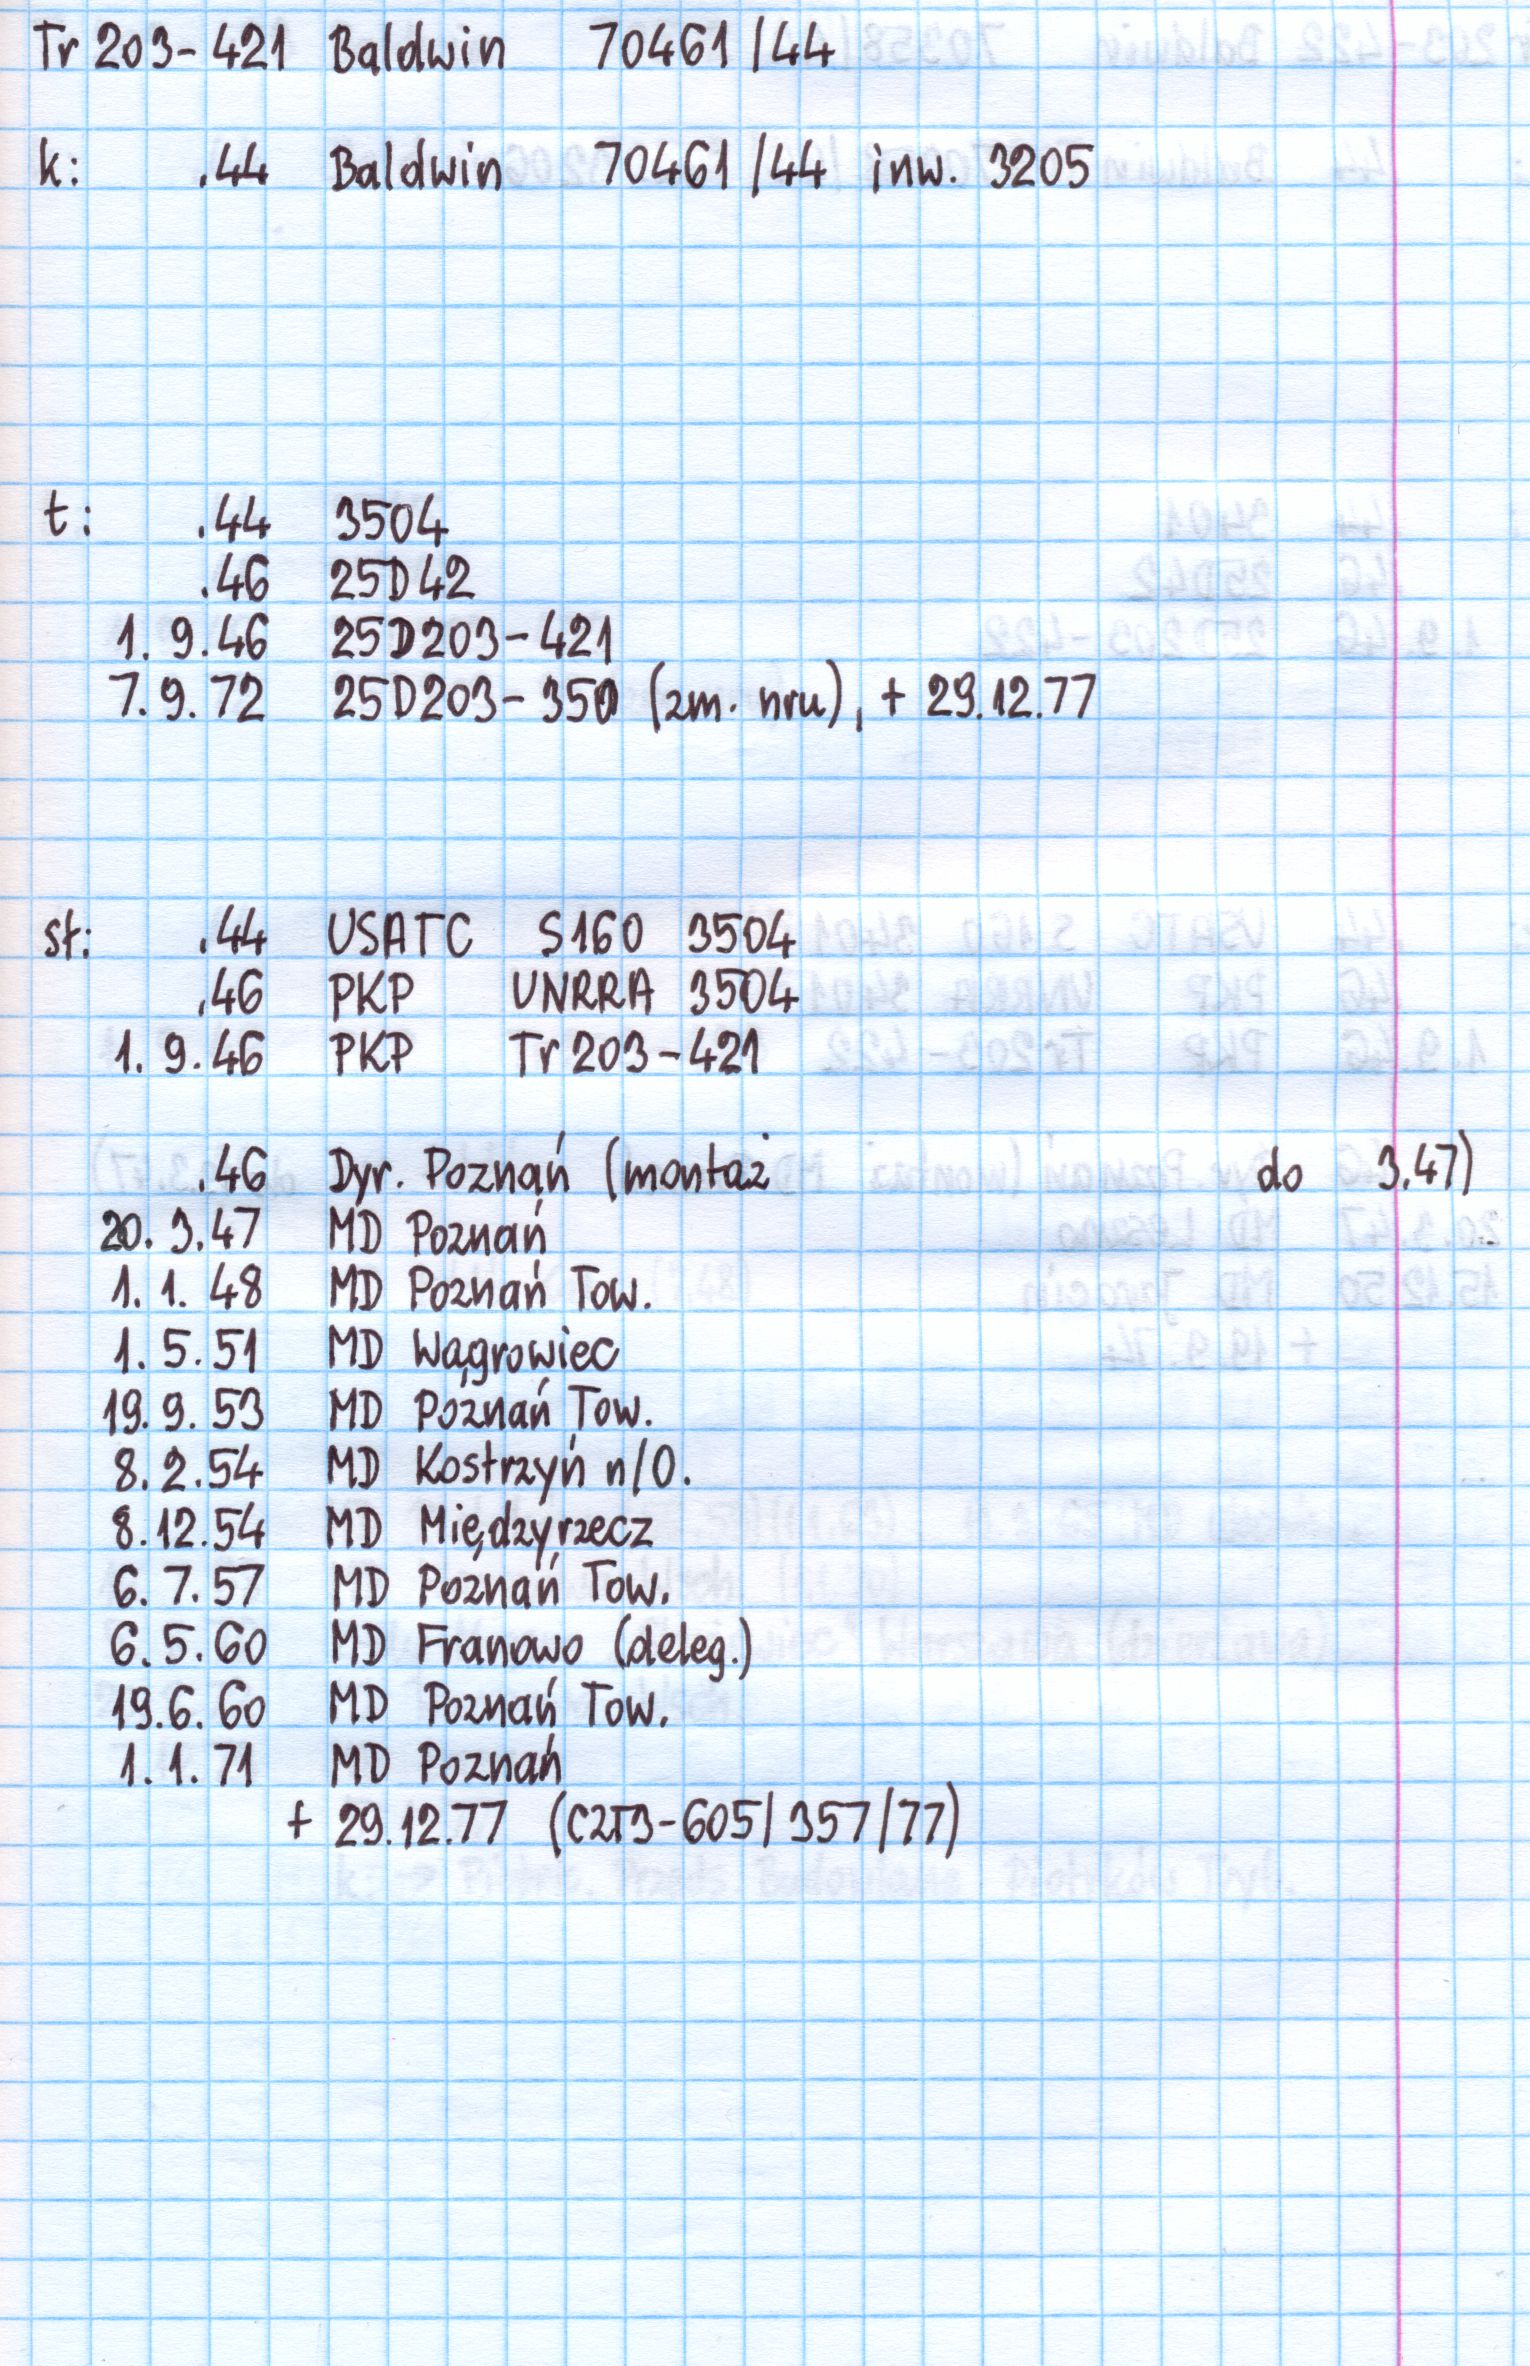 Tr 203-421 Baldwin 70461/44
k: .44 Baldwin 70461/44 inw. 3205
t: .44 3504
.46 25D42
1.9.46 25D203-421
7.9.72 25D203-350 (zm. nru), + 29.12.77
st: .44 USATC S160 3504
.46 PKP UNRRA 3504
1.9.46 PKP Tr 203-421
.46 Dyr. Poznań (montaż do 3.47)
20.3.47 MD Poznań
1.1.48 MD Poznań Tow.
1.5.51 MD Wągrowiec
19.9.53 MD Poznań Tow.
8.2.54 MD Kostrzyń n/O.
8.12.54 MD Międzyrzecz
6.7.57 MD Poznań Tow.
6.5.60 MD Franowo (deleg.)
19.6.60 MD Poznań Tow.
1.1.71 MD Poznań
+ 29.12.77 (C2T3-605/357/77)